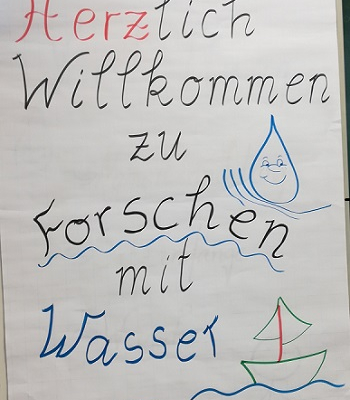 Herzlich
Willkommen
zu
Forschen
mit
Wasser